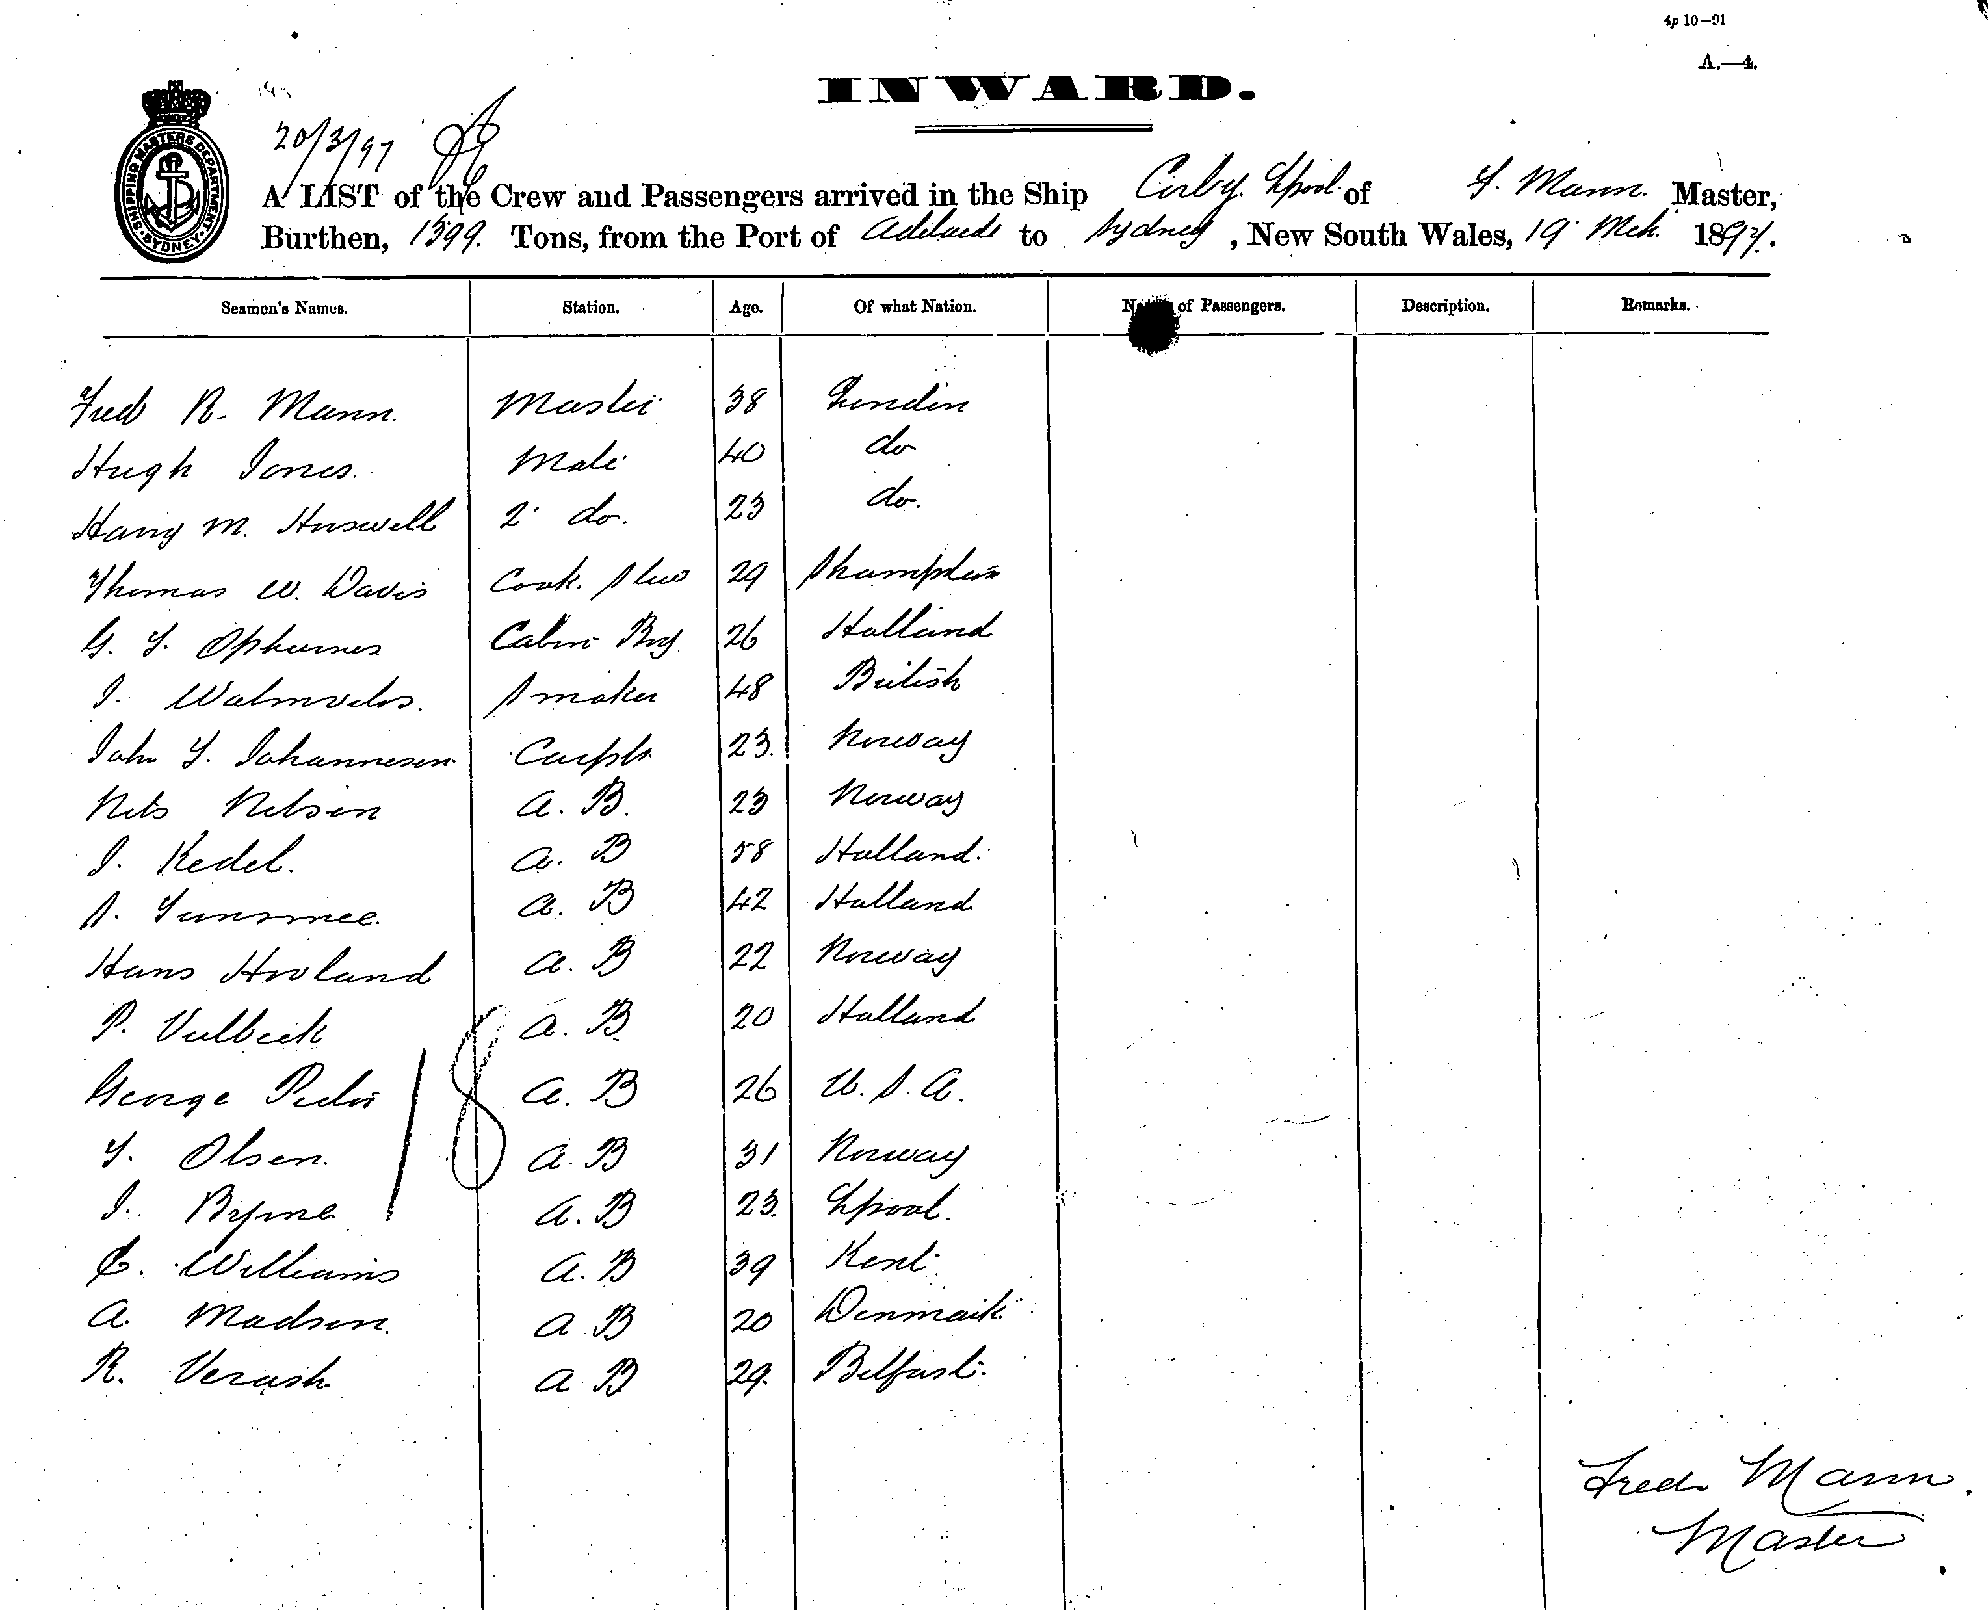 4p 10–91
A.—4.
INWARD.
20/3/97
SHIPPING MASTERS DEPARTMENT SYDNEY
A LIST of the Crew and Passengers arrived in the Ship Corby. Lpool of F. Mann. Master,
Burthen, 1399. Tons, from the Port of Adelaide to Sydney, New South Wales, 19 Mch. 1897.
Seamen's Names. Station. Age. Of what Nation. Names of Passengers. Description. Remarks.
Fred R. Mann. Master 38 London
Hugh Jones. Mate 40 do
Harry M. Huswell 2 do. 23 do.
Thomas W. Davis Cook. Stew 29 Shampton
G. F. Cabin Boy. 26 Holland
J. Smaker 48 British
John F. Johannesen Carptr 23. Norway
Nils Nilsen A. B. 23 Norway
J. Kedel. A. B 58 Holland.
S. A. B 42 Holland
Hans Hovland A. B 22 Norway
P. Vulbeck A. B 20 Holland
George A. B 26 U. S. A.
18
F. Olsen. A. B 31 Norway
J. Byrne A. B 23. Lpool.
C. Williams A. B 39 Kent.
A. Madsen. A B 20 Denmark
R. Verash A B 29. Belfast.
Fred. Mann.
Master